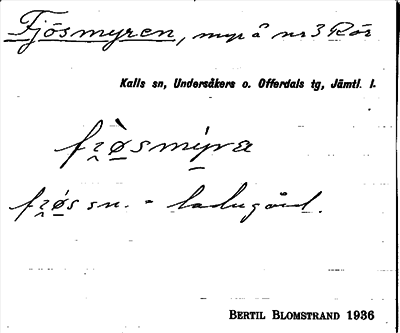 Fjösmyren, myr å nr 3 Rör
Kalls sn, Undersåkers o. Offerdals tg, Jämtl. l.
fi̯ø̀smýra
fi̯ǿs sn. = ladugård.
BERTIL BLOMSTRAND 1936